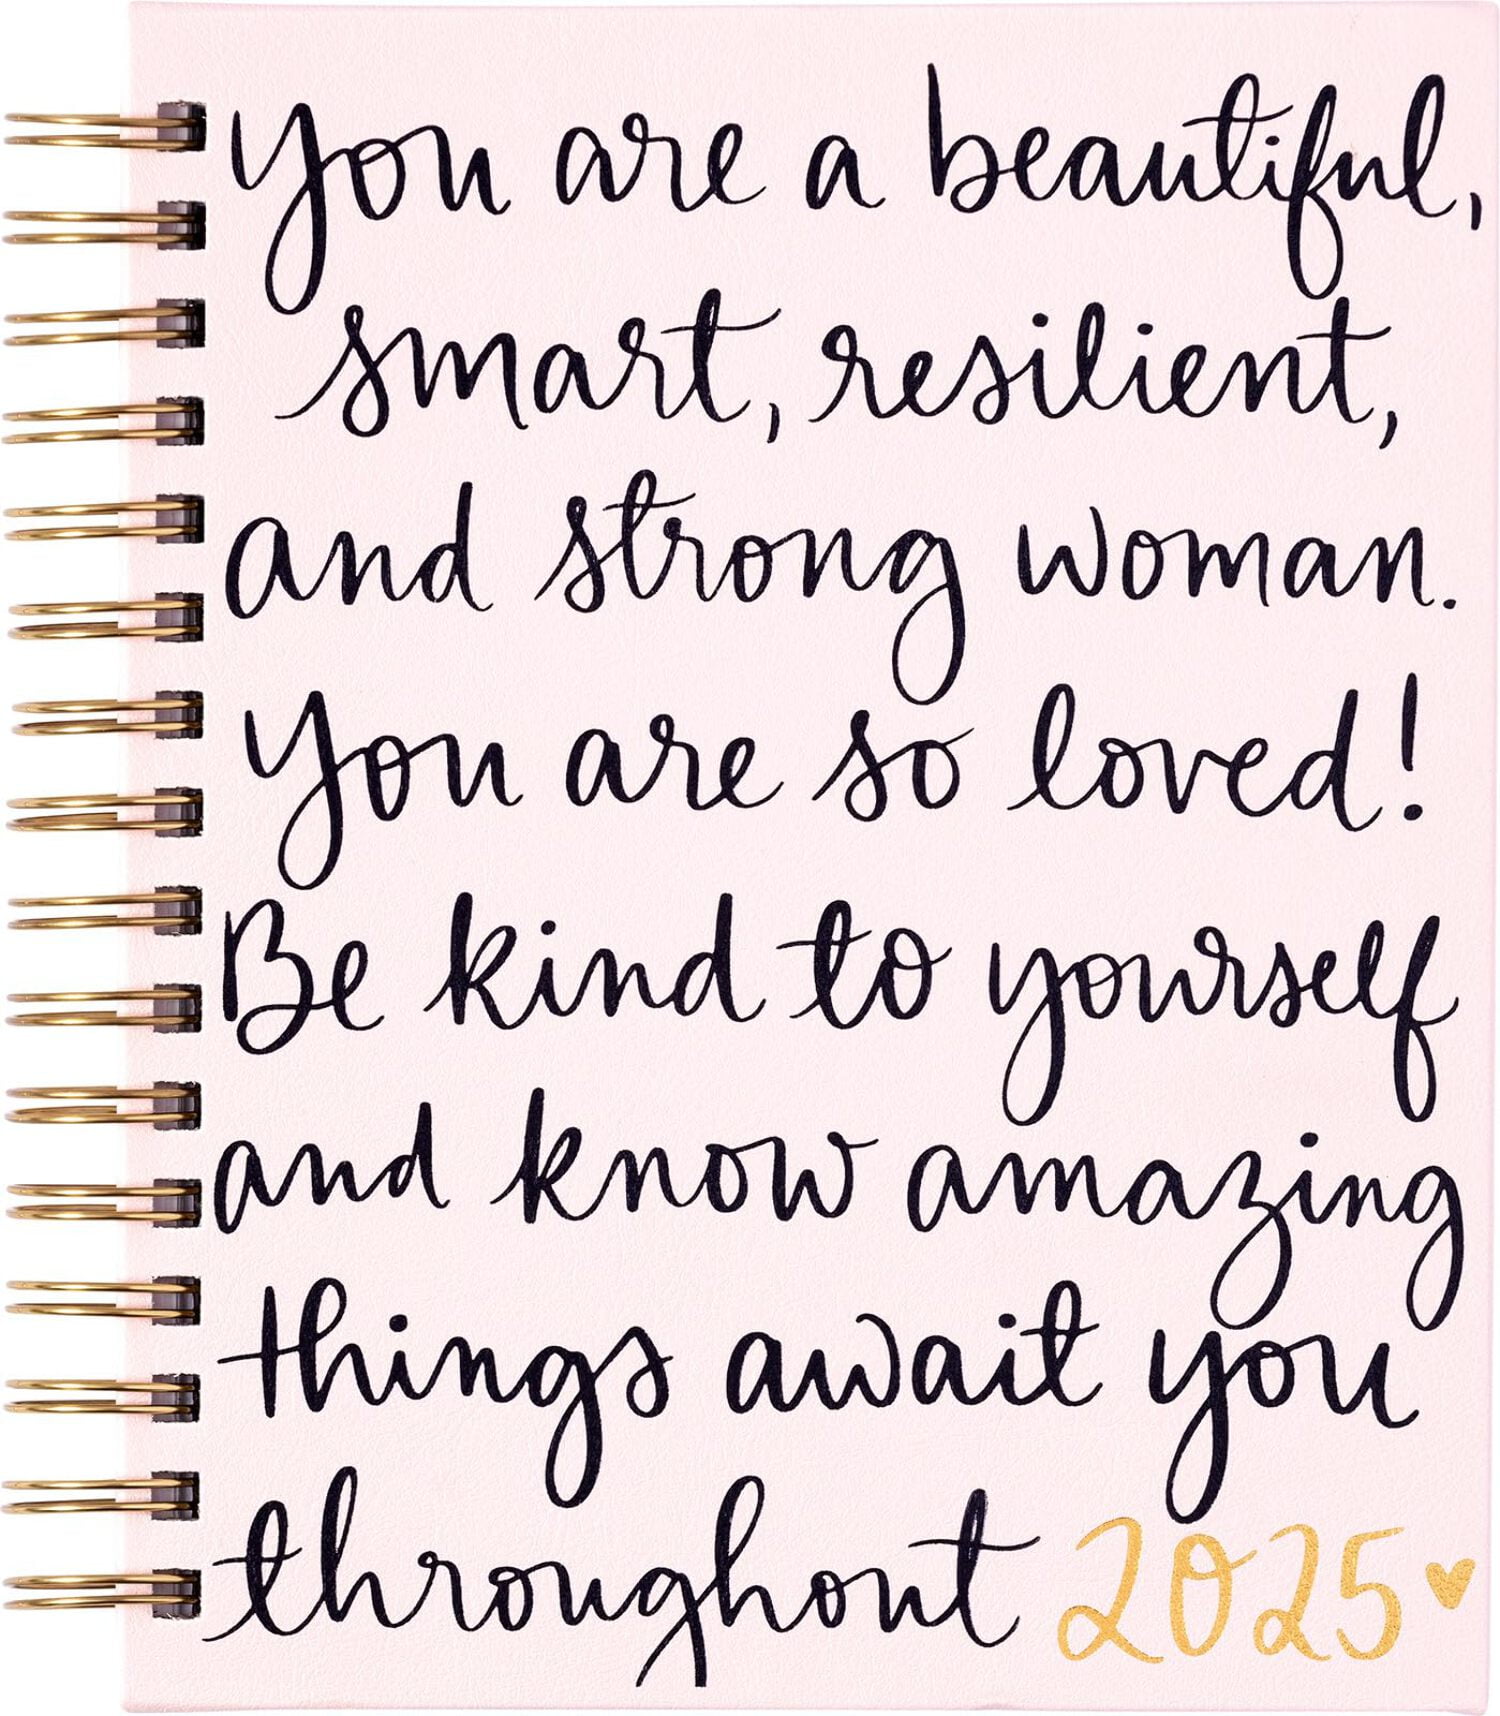 You are a beautiful,
smart, resilient,
and strong woman.
You are so loved!
Be kind to yourself
and know amazing
things await you
throughout 2025